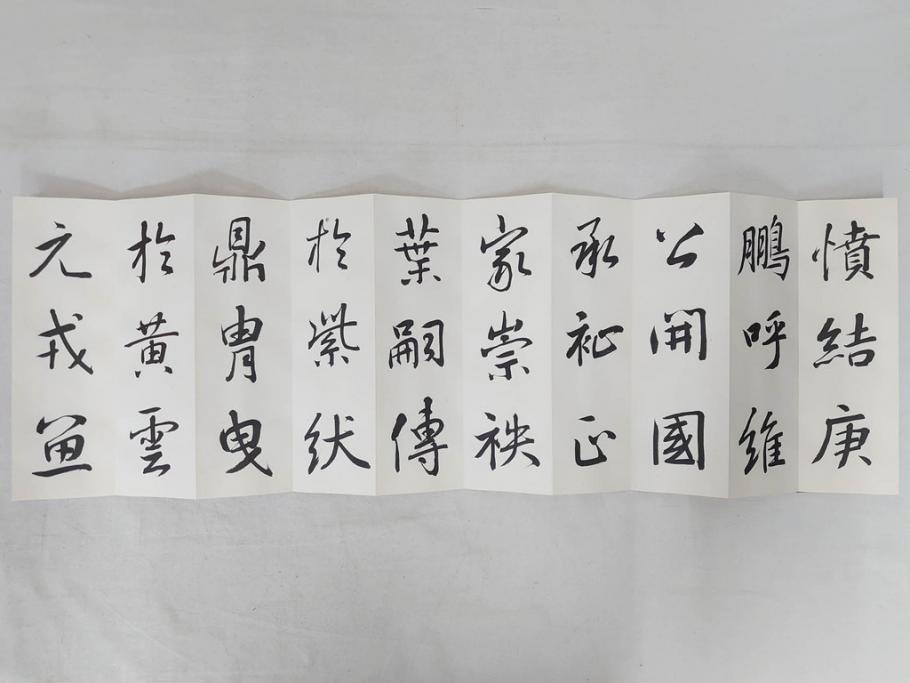 憤結庚
鵬呼維
公開國
承祉正
家崇秩
葉嗣傳
於紫紱
鼎胄曳
於黃雲
元戎